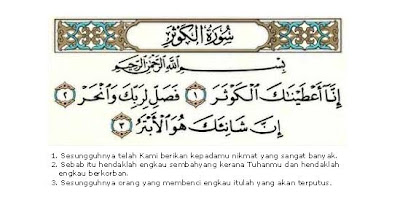 سُورَةُ الكَوْثَرِ
بِسْمِ اللَّهِ الرَّحْمَٰنِ الرَّحِيمِ
إِنَّا أَعْطَيْنَاكَ الْكَوْثَرَ ١ فَصَلِّ لِرَبِّكَ وَانْحَرْ ٢
إِنَّ شَانِئَكَ هُوَ الْأَبْتَرُ ٣
1. Sesungguhnya telah Kami berikan kepadamu nikmat yang sangat banyak.
2. Sebab itu hendaklah engkau sembahyang kerana Tuhanmu dan hendaklah
engkau berkorban.
3. Sesungguhnya orang yang membenci engkau itulah yang akan terputus.